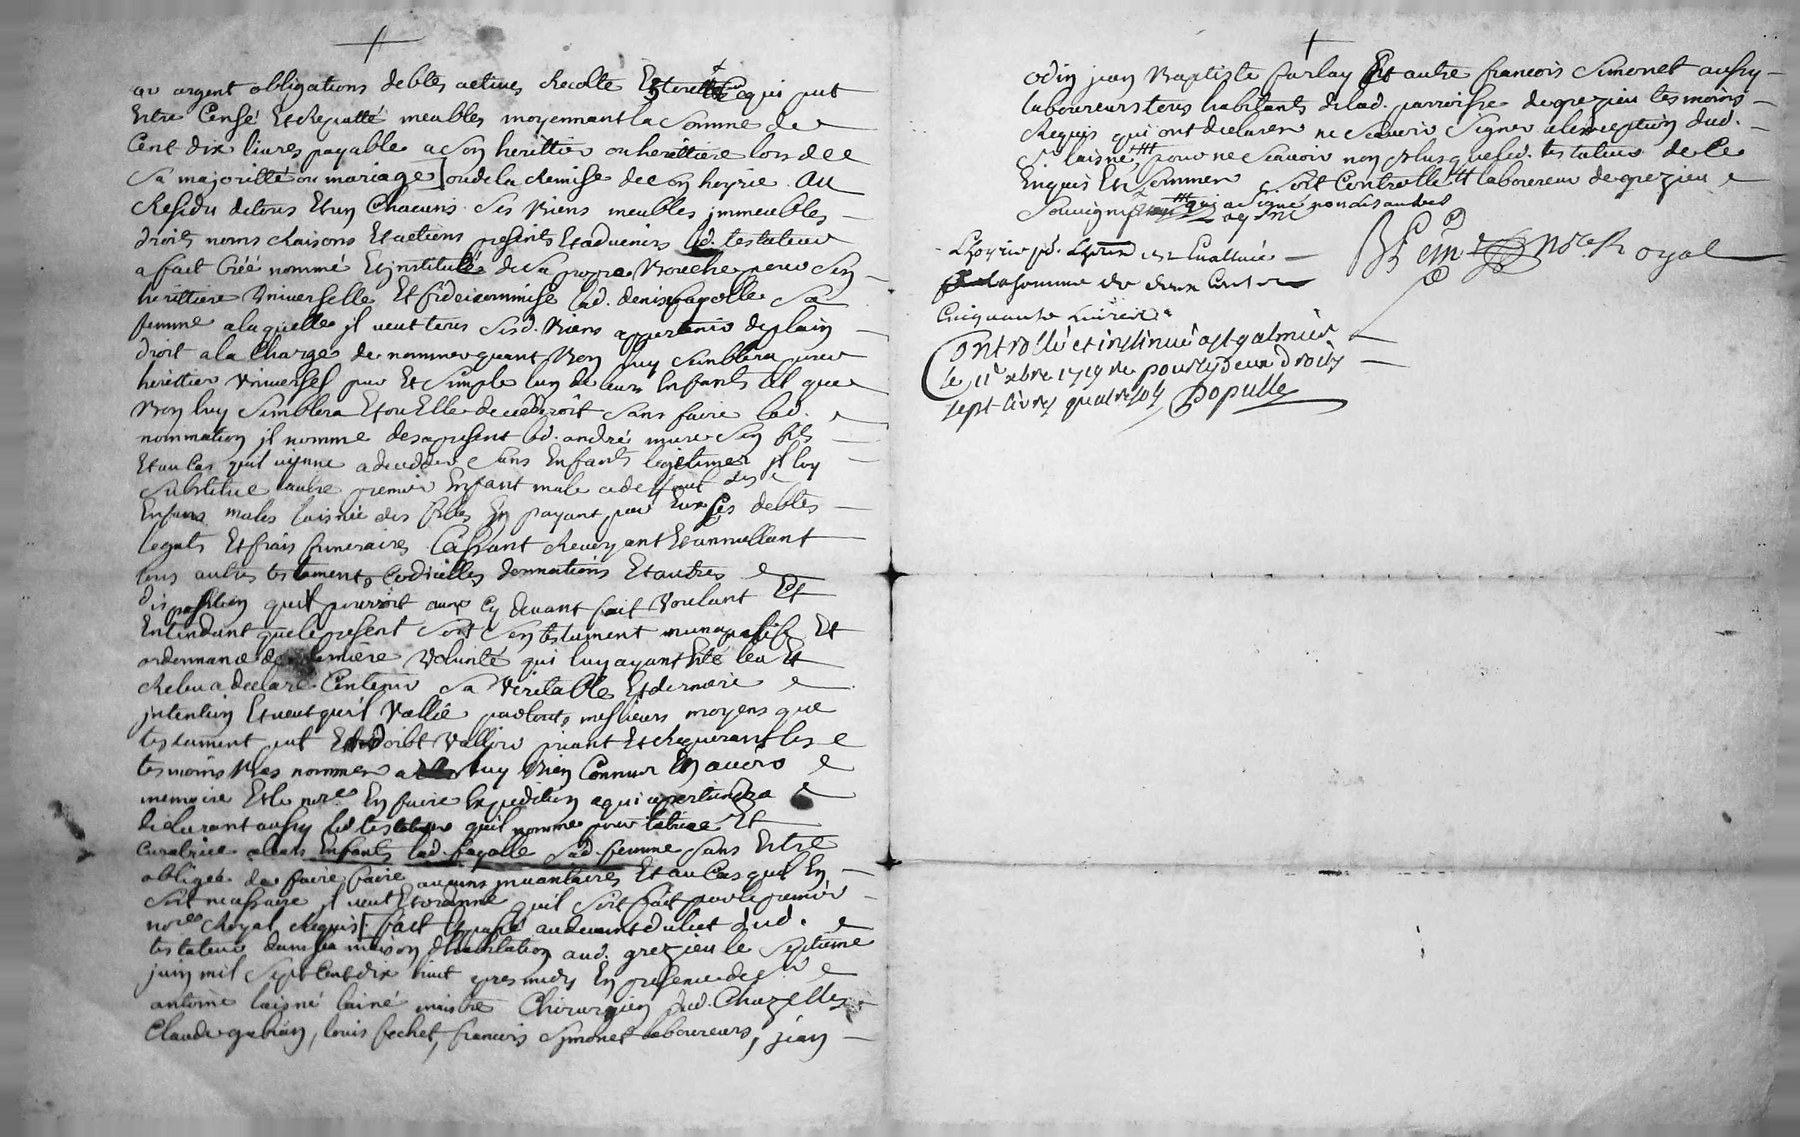 or argent obligations debtes actives recolte Et ce qui put
Estre Censé Et reputté meubles moyennant la Somme de
Cent dix livres payable a son herittier ou herittiere lors de
sa majoritté ou mariage ou de la remise de son hoyrie. Au
Residu de tous Et un Chacuns ses Biens meubles jmmeubles
droits noms raisons Et actions presents Et advenirs led. testateur
a fait Créé nommé Et jnstitué de sa propre Bouche pour son
herittiere Vniverselle Et fideicommise lad. denise fayolle sa
femme a laquelle jl veut tous sesd. Biens appartenir de plain
droit a la Charge de nommer quant Bon luy semblera pour
herittier Vniversel pur Et simple lun de leurs Enfants tel que
Bon luy semblera Et ou Elle decederoit sans faire lad.
nommation jl nomme des a present led. andré mure son fils
Et au Cas quil vienne a decedder sans Enfants legitimes jl luy
substitue lautre premier Enfant male a deffaut des
Enfans males laisnée des filles En payant par Eux ses debtes
legats Et frais funeraires Cassant Revoquant Et annullant
tous autres testaments Codicilles donnations Et autres
disposition quil pourroit avoir Cy devant fait Voulant Et
Entendant que le present soit son testament nuncupatif Et
ordonnance de derniere Volonté qui luy ayant Esté leu Et
Releu a declaré Contenir sa Veritable Et derniere
jntention Et veut quil Vallie par tous meslieurs moyens que
testament put Et doibt Vallior priant Et Requerant les
temoins Bas nommer a luy Bien Connus En avoir
memoire Et le nore. En faire Expedition a qui apartiendra
declarant aussy led. testateur quil nomme pour tutrice Et
Curatrice a leurs Enfants lad. fayolle sad. femme sans Estre
obligée de faire faire aucuns jnvantaires Et au Cas quil En
soit necessaire jl veut Et ordonne quil soit fait par le premier
nore Royal Requis fait Et passé au devant du lict dud.
testateur dans sa maison dhabitation aud. grezieu le septieme
juin mil sept Cent dix huit apres midy En presence de sr.
antoine laisné lainé maistre Chirurgien dud. Chazelles
Claude gubian, louis pechet, francois simonet laboureurs, jean
odin jean Baptiste farlay Et autre francois Simonet aussy
laboureurs tous habitants de lad. parroisse de grezieu tesmoins
Requis qui ont declarer ne scavoir signer a lexception dud.
sr. laisné pour ne scavoir non plus que led. testateur de Ce
Enquis Et sommer soit Controllé laboureur de grezieu
Soussigné qui a signé non les autres
Lhoyrie Evalluée
la somme de deux Cent
Cinquante Livres
nore. Royal
Controllé et insinué a St galmier
le 11e xbre 1719 Re pour les deux droits
sept livres quatre sols Populle